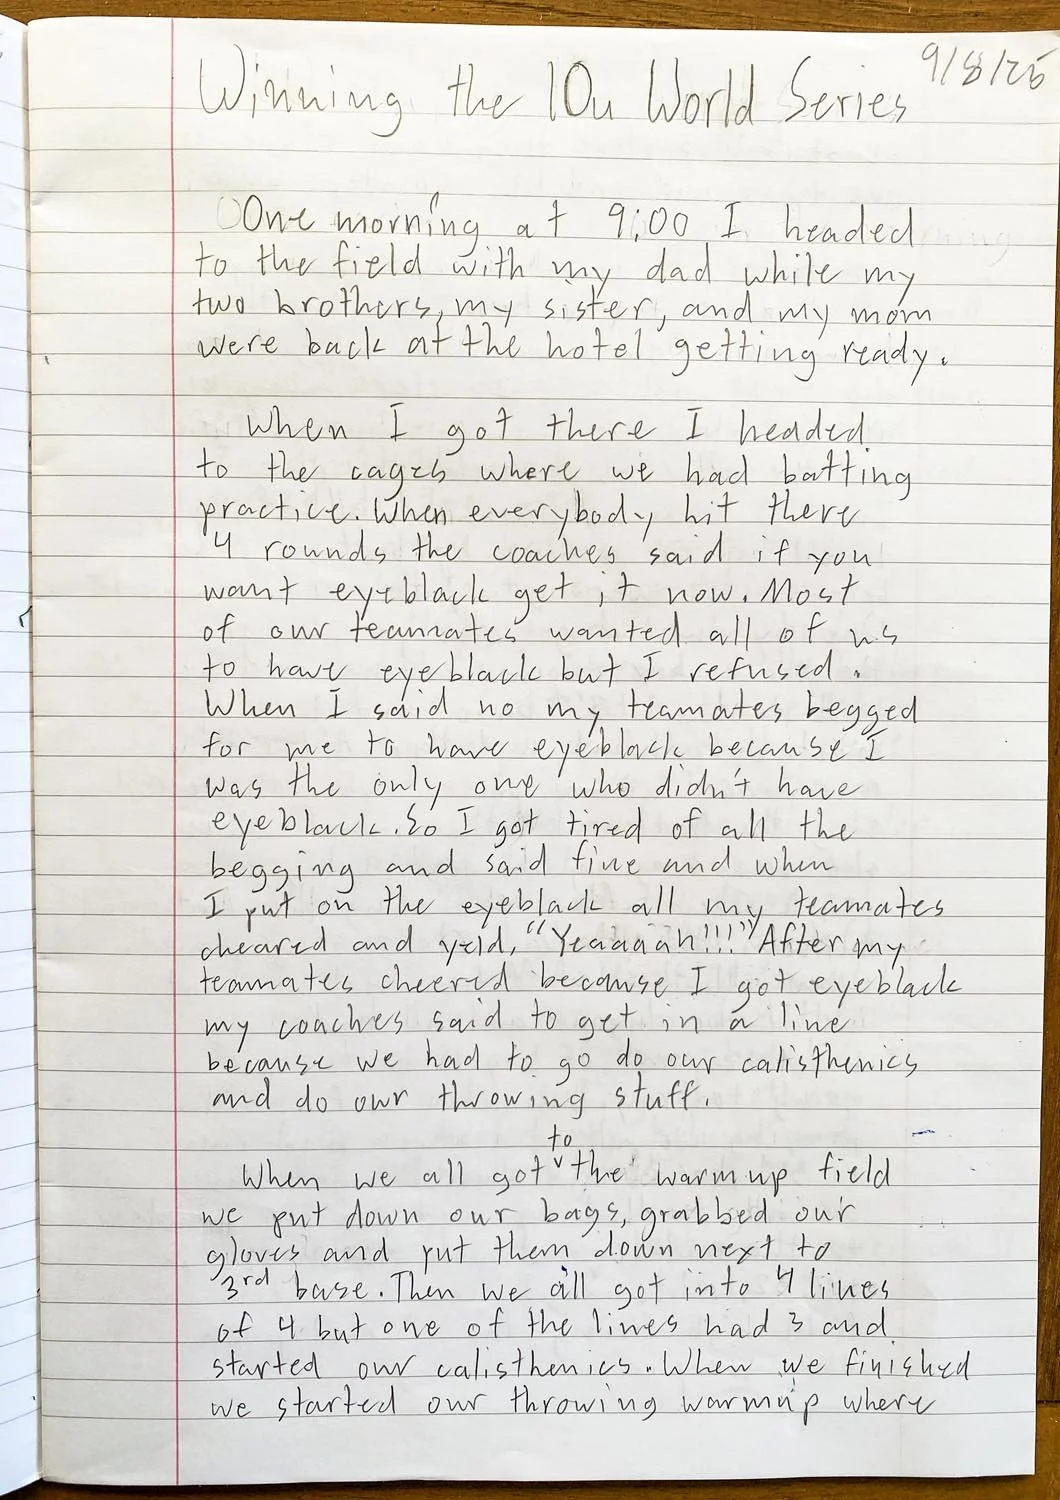 9/8/25
Winning the 10u World Series
One morning at 9:00 I headed
to the field with my dad while my
two brothers, my sister, and my mom
were back at the hotel getting ready.
When I got there I headed
to the cages where we had batting
practice. When everybody hit there
4 rounds the coaches said if you
want eyeblack get it now. Most
of our teamates wanted all of us
to have eyeblack but I refused.
When I said no my teamates begged
for me to have eyeblack because I
was the only one who didn't have
eyeblack. So I got tired of all the
begging and said fine and when
I put on the eyeblack all my teamates
cheared and yeld, "Yeaaaah!!!" After my
teamates cheered because I got eyeblack
my coaches said to get in a line
because we had to go do our calisthenics
and do our throwing stuff.
When we all got to the warmup field
we put down our bags, grabbed our
gloves and put them down next to
3rd base. Then we all got into 4 lines
of 4 but one of the lines had 3 and
started our calisthenics. When we finished
we started our throwing warmup where